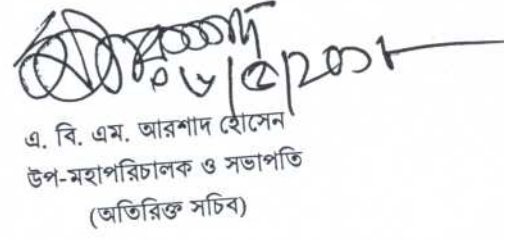 এ. বি. এম. আরশাদ হোসেন
উপ-মহাপরিচালক ও সভাপতি
(অতিরিক্ত সচিব)